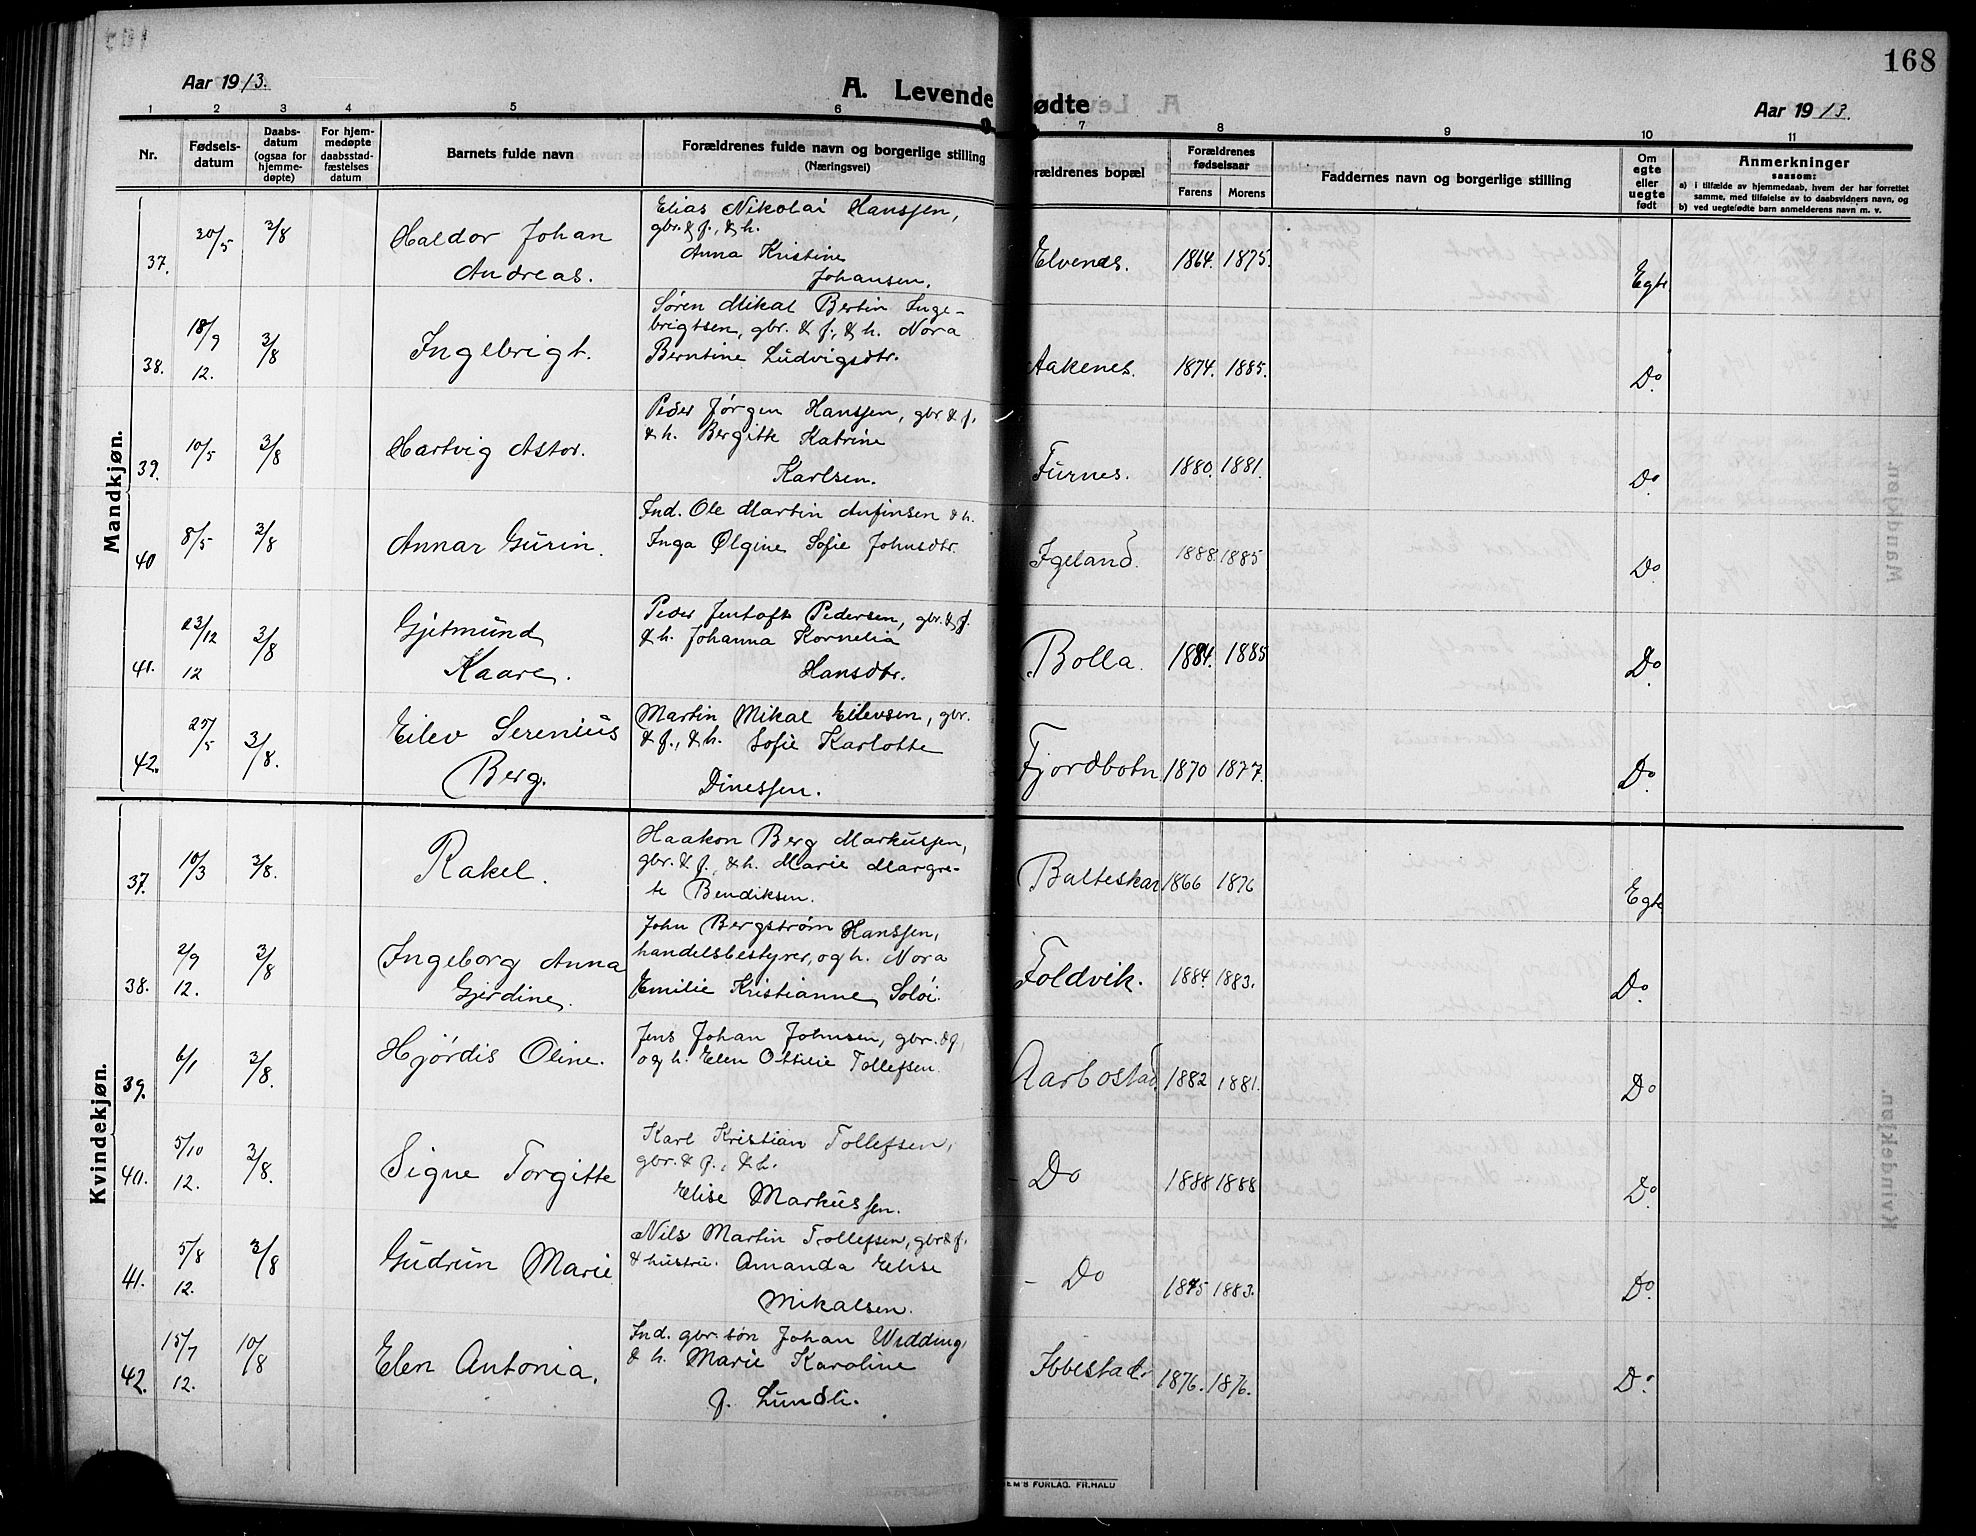 168
Aar 1913.
A. Levende
ødte
Aar 1913.
1 2 3 4 5 6 7 8 9 10 11
Nr.
Fødsels-
datum
Daabs-
datum
(ogsaa for
hjemme-
døpte)
For hjem-
medøpte
daabsstad-
fæstelses
datum
Barnets fulde navn
Forældrenes fulde navn og borgerlige stilling
(Næringsvei)
rældrenes bopæl
Forældrenes
fødselsaar
Farens Morens
Faddernes navn og borgerlige stilling
Om
egte
eller
uegte
født
Anmerkninger
saasom:
a) i tilfælde av hjemmedaab, hvem der har forrettet
samme, med tilføielse av to daabsvidners navn, og
b) ved uegtefødte barn anmelderens navn m. v.
Mandkjøn.
37. 30/5 3/8 Haldor Johan
Andreas.
Elias Nikolai Hanssen,
gbr. & f., & h.
Anna Kristine
Johansen.
Elvenes. 1864. 1875. Egte
38. 18/9 12. 3/8 Ingebrigt.
Søren Mikal Bertin Inge-
brigtsen, gbr. & f., & h. Nora
Berntine Ludvigsdtr.
Aakenes. 1874. 1885. Do
39. 10/5 3/8 Hartvig Astor.
Peder Jørgen Hanssen, gbr. & f.
& h. Bergitte Katrine
Karlsen.
Furnes. 1880. 1881. Do
40 8/5 3/8 Annar Gurin.
Ind. Ole Martin Anfinsen & h.
Inga Olgine Sofie Johnsdtr.
Igeland. 1888. 1885 Do
41. 23/12 12 3/8 Gjetmund
Kaare.
Peder Jentoft Pedersen, gbr. & f.
& h. Johanna Kornelia
Hansdtr.
Bolla. 1884. 1885 Do
42. 25/5 3/8. Eilev Serenius
Berg.
Martin Mikal Eilevsen, gbr.
& f., & h. Sofie Karlotte
Dinessen.
Fjordbotn 1870 1877. Do
Kvindekjøn.
37. 10/3 3/8. Rakel.
Haakon Berg Markussen,
gbr. & f., & h. Marie Margre-
te Bendiksen.
Balteskar 1866 1876 Egte
38. 2/9 12. 3/8 Ingeborg Anna
Gjerdine.
John Bergstrøm Hanssen,
handelsbestyrer, og h. Nora
Emilie Kristianne Soløi.
Foldvik. 1884. 1883. Do
39. 6/1 3/8. Hjørdis Oline.
Jens Johan Johnsen, gbr. & f.
og h. Elen Ottilie Tollefsen.
Aarbostad. 1882 1881. Do
40. 5/10 12. 3/8. Signe Torgitte
Karl Kristian Tollefsen,
gbr. & f., & h.
Elise Markussen.
- Do 1888 1888 Do
41. 5/8 12. 3/8 Gudrun Marie
Nils Martin Tollefsen, gbr & f.
& hustru. Amanda Elise
Mikalsen.
- Do 1883. Do
42. 15/7 12. 10/8 Elen Antonia.
Ind. gbr. søn Johan Widding
& h. Marie Karoline
f. Lundli.
Ibbestad. 1876. 1876. Do
EM'S FORLAG. FR. HALD